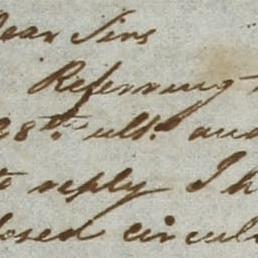 Dear Sirs
Referring
28th ult. and
to reply I h
losed circul